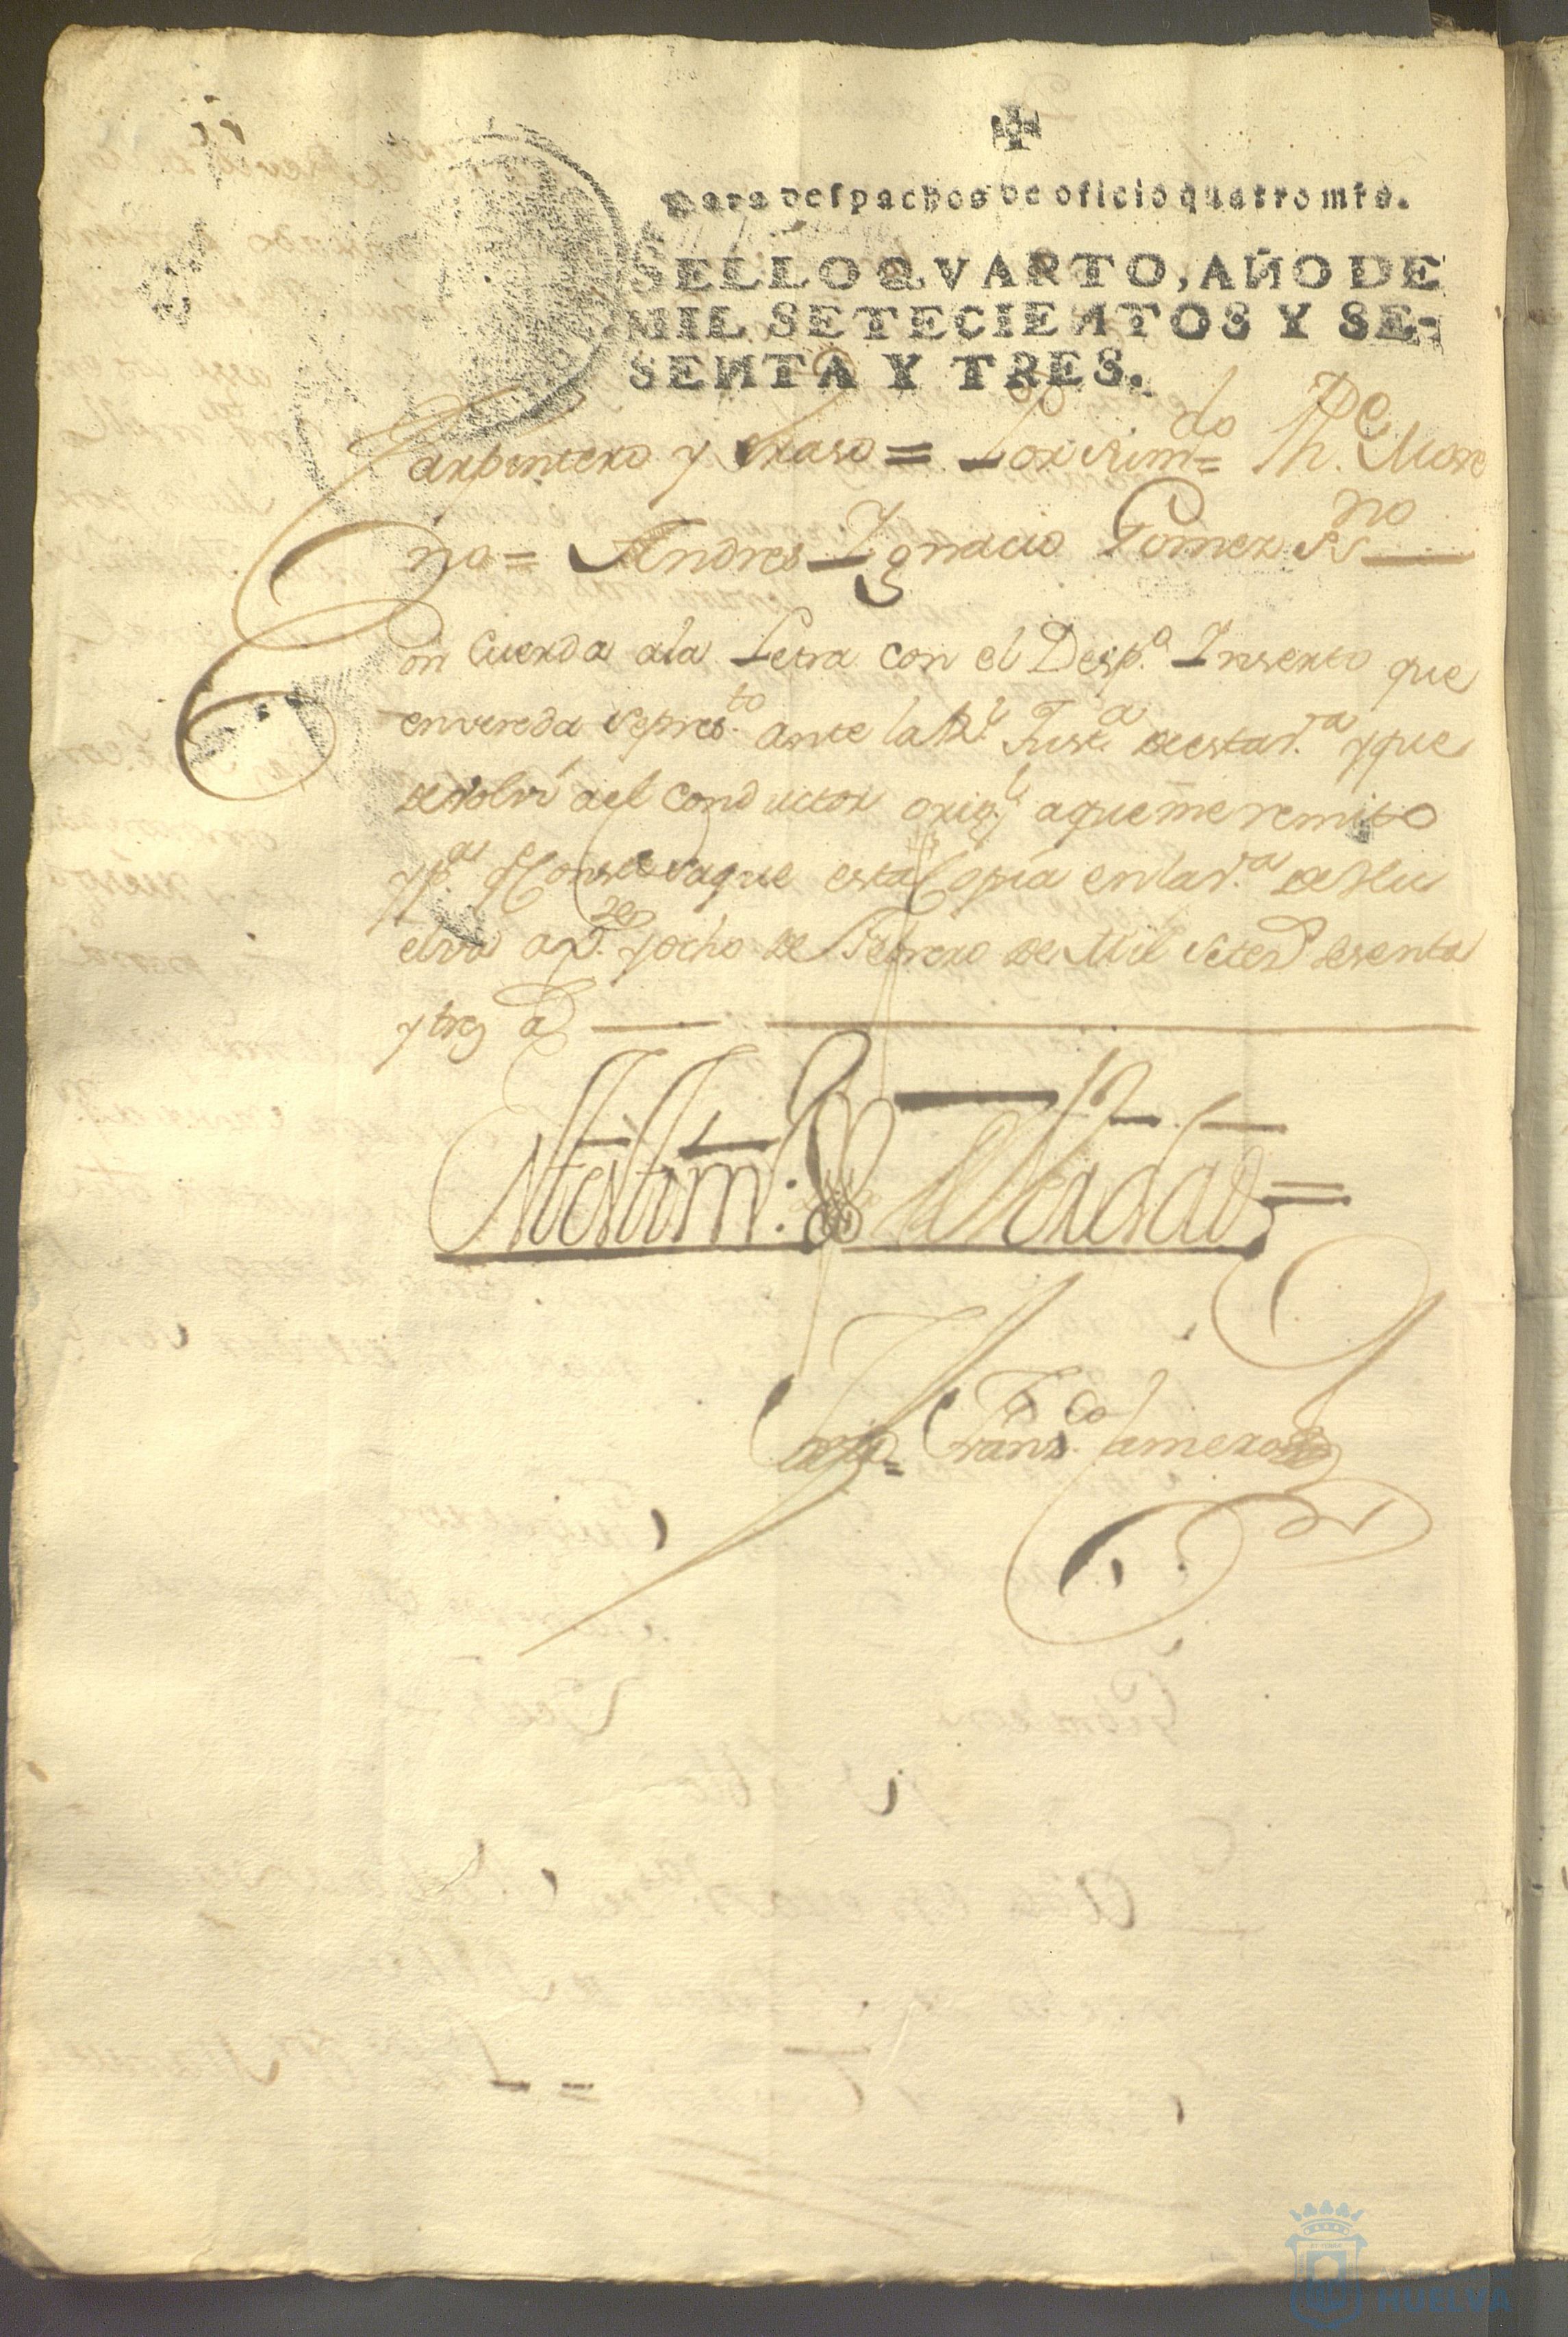 Para despachos de oficio quatro mrs.
SELLO QVARTO, AÑO DE
MIL SETECIENTOS Y SE-
SENTA Y TRES.
Carpintero y Eraso = Por Rim.do = Th.e More
no = Andres Ignacio Gomez Ss.no
Concuerda a la Letra con el Desp.o Inserto que
en vereda se pres.to ante la R.l Just.a de esta v.a y que
devolvi a el conductor orig.l a que me remito
y p.a q Conste saque esta Copia en la v.a de Hu
elva a D.ez y ocho de Febrero de Mil Setes.s Sesenta
y tres a.s
Testim.o de Verdad =
Franz.co Camero
HUELVA